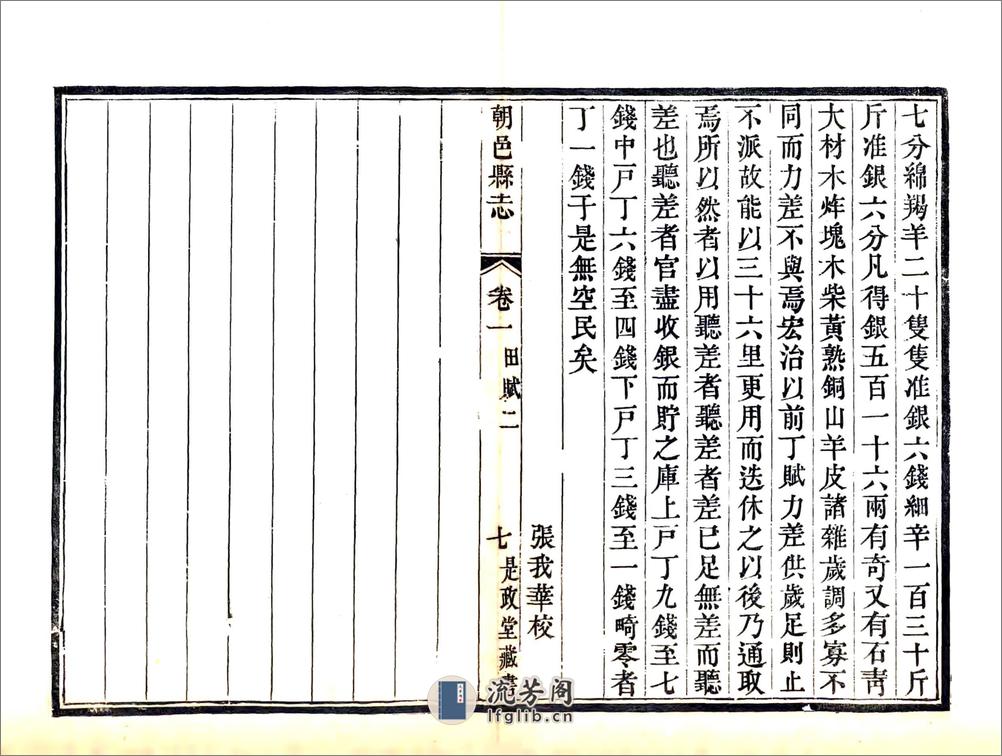 七分綿羯羊二十隻隻准銀六錢細辛一百三十斤
斤准銀六分凡得銀五百一十六兩有奇又有石靑
大材木炸塊木柴黃熟銅山羊皮諸雜歲調多寡不
同而力差不與焉宏治以前丁賦力差供歲足則止
不派故能以三十六里更用而迭休之以後乃通取
焉所以然者以用聽差者聽差者差已足無差而聽
差也聽差者官盡收銀而貯之庫上戸丁九錢至七
錢中戸丁六錢至四錢下戸丁三錢至一錢畸零者
丁一錢于是無空民矣
張我華校
朝邑縣志
卷一
田賦二
七
是政堂藏書
流芳阁
lfglib.cn